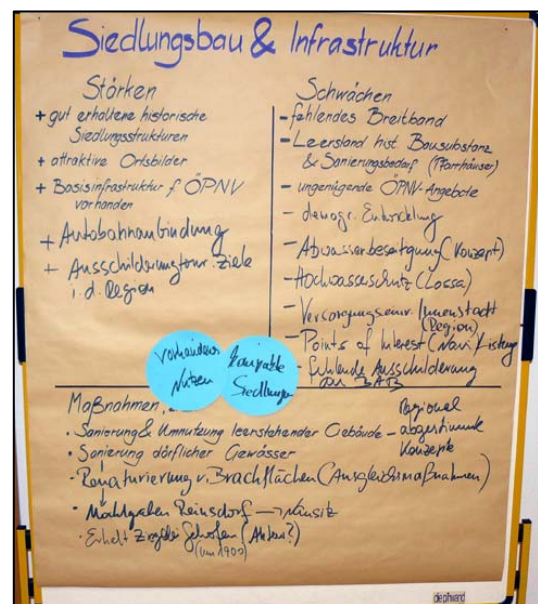 Siedlungsbau & Infrastruktur
Stärken
+ gut erhaltene historische
Siedlungsstrukturen
+ attraktive Ortsbilder
+ Basisinfrastruktur f ÖPNV
vorhanden
+ Autobahnanbindung
+ Ausschilderung tour. Ziele
i. d. Region
Schwächen
- fehlendes Breitband
- Leerstand hist Bausubstanz
& Sanierungsbedarf (Pfarrhäuser)
- ungenügende ÖPNV-Angebote
- demogr. Entwicklung
- Abwasserbeseitigung (Konzept)
- Hochwasserschutz (Lossa)
- Versorgungseinr. Innenstadt
(Region)
- Points of Interest (Navi)
- fehlende Ausschilderung
an BAB
Vorhandenes
Nutzen
kompakte
Siedlungen
Maßnahmen
· Sanierung & Umnutzung leerstehender Gebäude - Regional
abgestimmte
Konzepte
· Sanierung dörflicher Gewässer
· Renaturierung v. Brachflächen (Ausgleichsmaßnahmen)
· Mahlgraben Reinsdorf →
· Erhalt Ziegelei Gehofen
(um 1900)
diepinwand